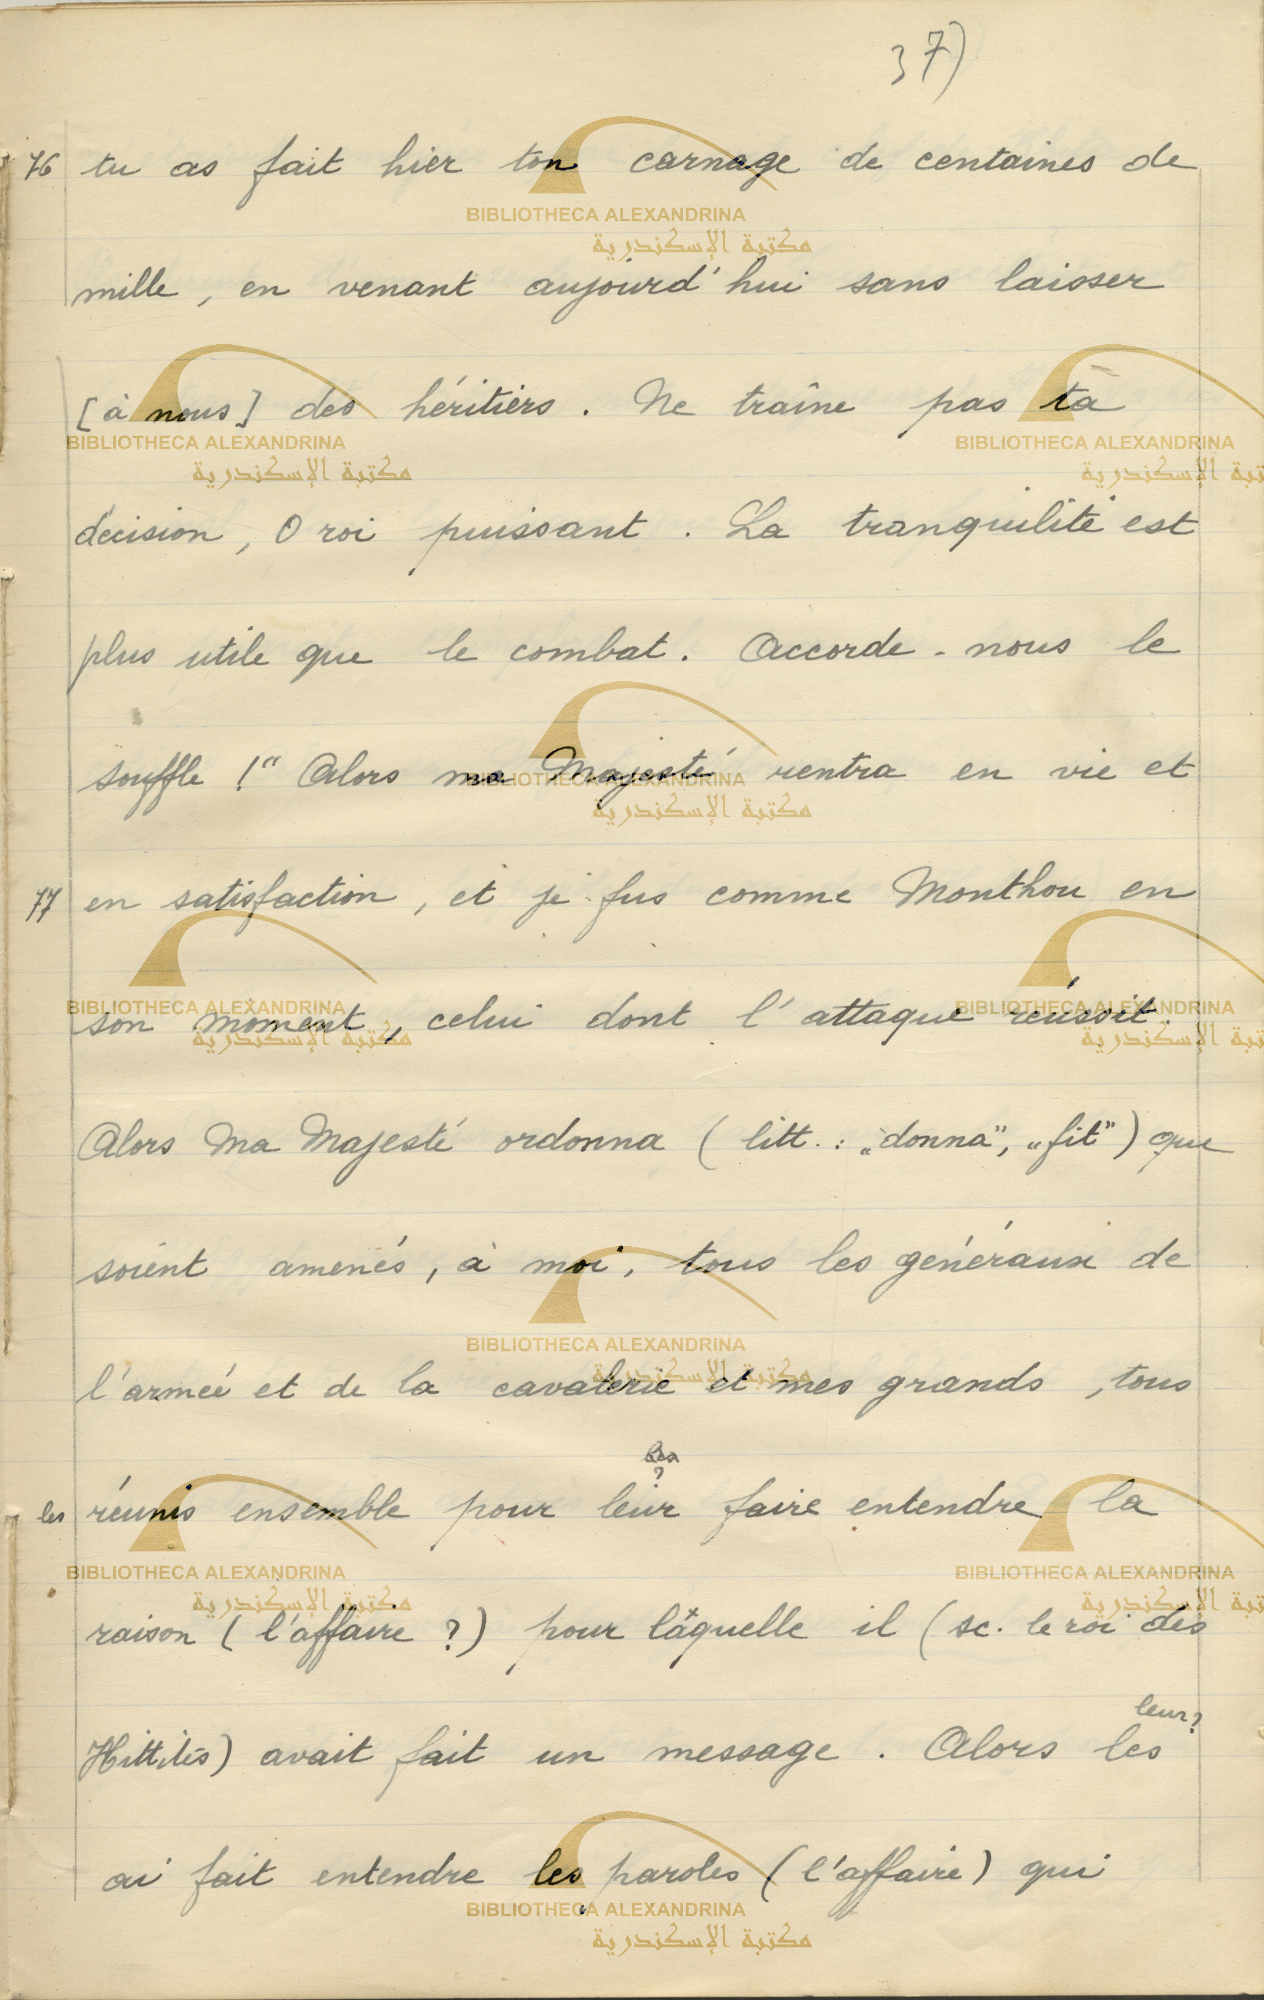 37)
76 tu as fait hier ton carnage de centaines de
mille, en venant aujourd'hui sans laisser
[à nous] des héritiers. Ne traîne pas ta
décision, O roi puissant. La tranquilité est
plus utile que le combat. Accorde-nous le
souffle !" Alors ma Majesté rentra en vie et
77 en satisfaction, et je fus comme Monthou en
son moment, celui dont l'attaque réussit.
Alors Ma Majesté ordonna (litt.: „donna", „fit") que
soient amenés, à moi, tous les généraux de
l'armée et de la cavalerie et mes grands, tous
les réunis ensemble pour leur ? faire entendre la
raison (l'affaire ?) pour laquelle il (sc. le roi des
leur?
Hittites) avait fait un message. Alors les
ai fait entendre les paroles (l'affaire) qui
BIBLIOTHECA ALEXANDRINA
مكتبة الإسكندرية
BIBLIOTHECA ALEXANDRINA
مكتبة الإسكندرية
BIBLIOTHECA ALEXANDRINA
مكتبة الإسكندرية
BIBLIOTHECA ALEXANDRINA
مكتبة الإسكندرية
BIBLIOTHECA ALEXANDRINA
مكتبة الإسكندرية
BIBLIOTHECA ALEXANDRINA
مكتبة الإسكندرية
BIBLIOTHECA ALEXANDRINA
مكتبة الإسكندرية
BIBLIOTHECA ALEXANDRINA
مكتبة الإسكندرية
BIBLIOTHECA ALEXANDRINA
مكتبة الإسكندرية
BIBLIOTHECA ALEXANDRINA
مكتبة الإسكندرية